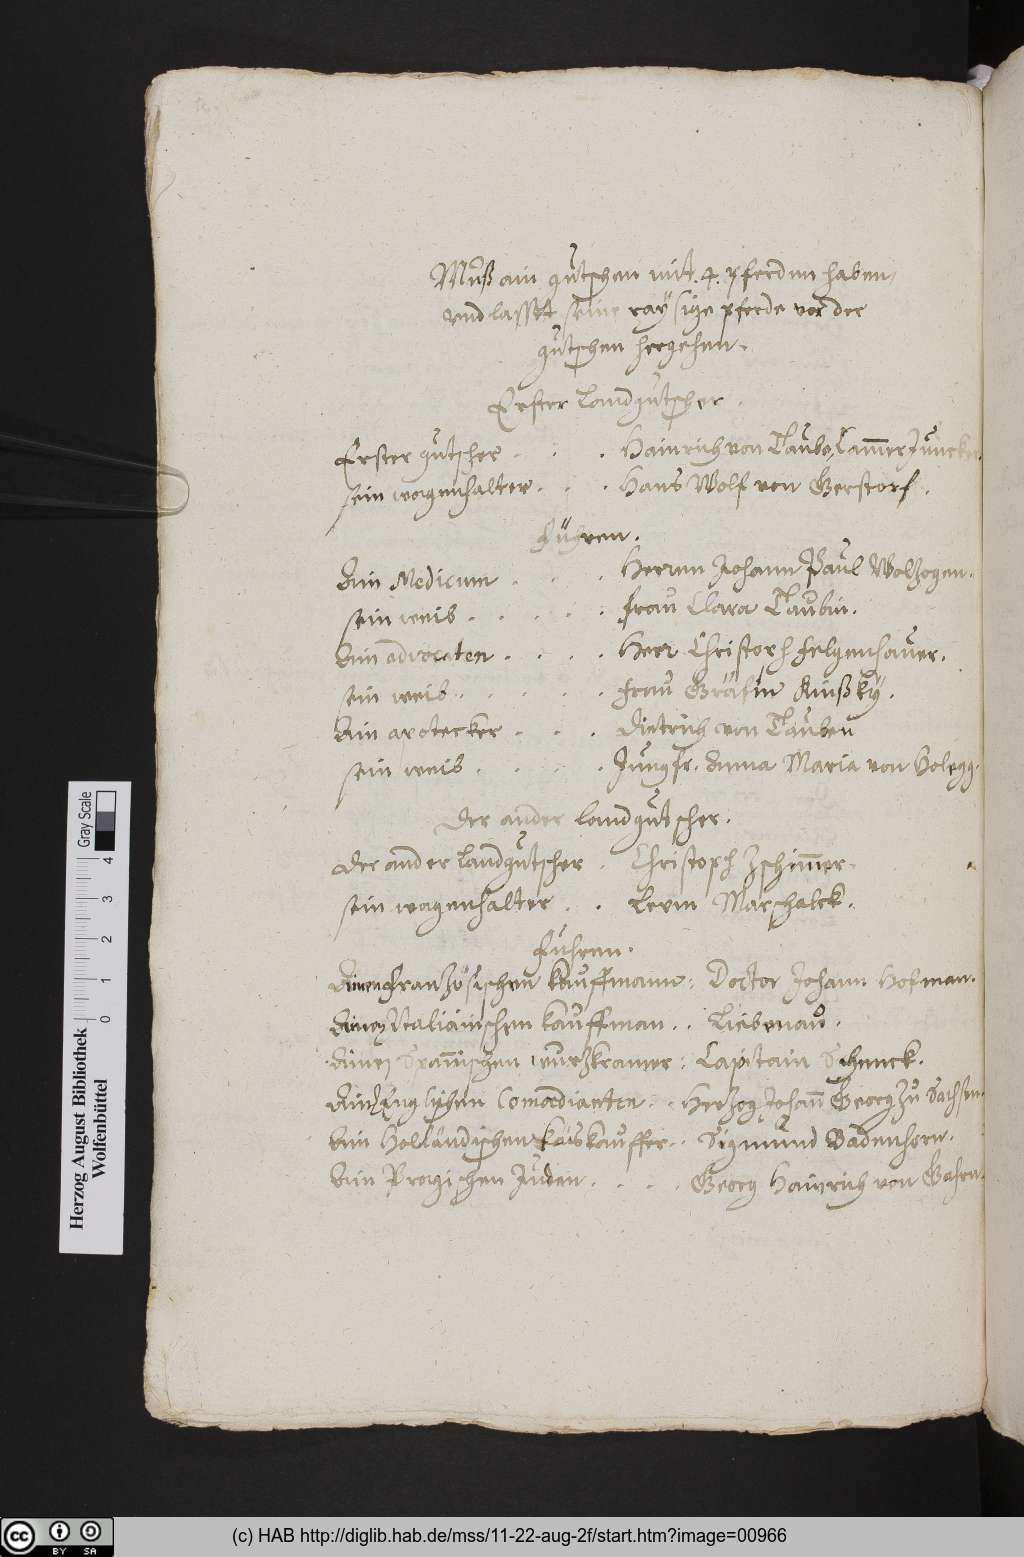 Muß ain gutschen mit .4. pferdten haben,
vnd lasset seine raysige pferde vor der
gutschen hergehen.
Erster Landgutscher.
Erster gutscher . . . Hainrich von Taube, Cammer Juncker.
sein wagenhalter . . . Hans Wolf von Gerstorf.
Führen.
Ain Medicum . . . Herrn Johann Paul Wolzogen.
sein weib . . . . . frau Clara Taubin.
Ain advocaten . . . . Herr Christoph felgenhauer.
sein weib . . . . . frau Gräfin Kinßky.
Ain apotecker . . . . dietrich von Tauben
sein weib . . . . . Jungfr. Anna Maria von Bolegg.
Der ander landgutscher.
der ander landgutscher . Christoph Zschimmer
sein wagenhalter . . . Levin Marschalck.
Führen.
Ainen französischen kauffmann: Doctor Johann Hofman.
Ainen Italianischen kauffman . . Liebenau.
Ainen Spannischen würzkramer: Capitain Schenck.
Ain Englischen Comœdianten . . Herzog Johann Georg zu Sachsen.
Ain Holländischen käskauffer . . Sigmund Badenhorn.
Ain Pragischen Juden . . . . Georg Hainrich von
Gray Scale
0 1 2 3 4
Herzog August Bibliothek
Wolfenbüttel
cc BY SA
(c) HAB http://diglib.hab.de/mss/11-22-aug-2f/start.htm?image=00966